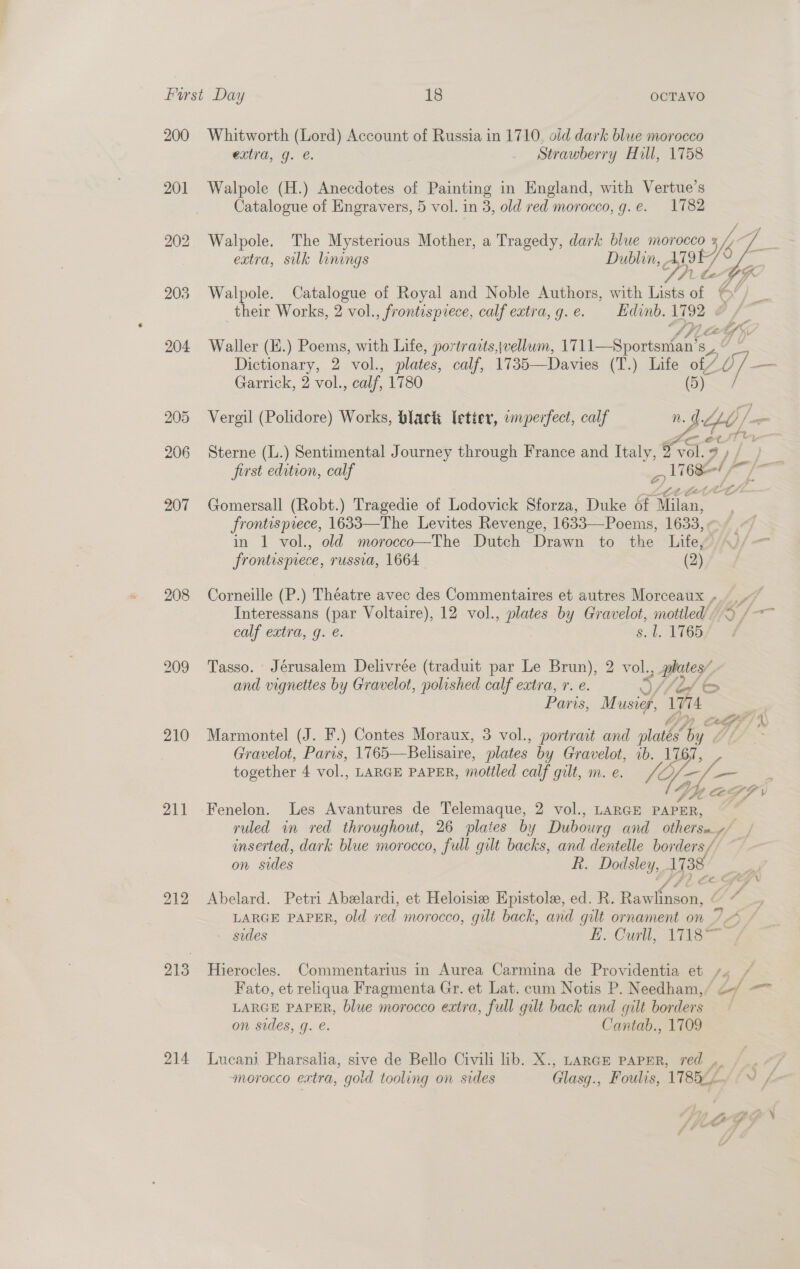 First Day 18 OCTAVO
200 Whitworth (Lord) Account of Russia in 1710, old dark blue morocco
extra, g. e. Strawberry Hill, 1758
201 Walpole (H.) Anecdotes of Painting in England, with Vertue's
Catalogue of Engravers, 5 vol. in 3, old red morocco, g. e. 1782
202 Walpole. The Mysterious Mother, a Tragedy, dark blue morocco
extra, silk linings Dublin, 1791
203 Walpole. Catalogue of Royal and Noble Authors, with Lists of
their Works, 2 vol., frontispiece, calf extra, g. e. Edinb. 1792
204 Waller (E.) Poems, with Life, portraits, vellum, 1711—Sportsman's
Dictionary, 2 vol., plates, calf, 1735—Davies (T.) Life of
Garrick, 2 vol., calf, 1780 (5)
205 Vergil (Polidore) Works, black letter, imperfect, calf n. d.
206 Sterne (L.) Sentimental Journey through France and Italy, 2 vol.
first edition, calf 1768
207 Gomersall (Robt.) Tragedie of Lodovick Sforza, Duke of Milan,
frontispiece, 1633—The Levites Revenge, 1633—Poems, 1633,
in 1 vol., old morocco—The Dutch Drawn to the Life,
frontispiece, russia, 1664 (2)
208 Corneille (P.) Théatre avec des Commentaires et autres Morceaux
Interessans (par Voltaire), 12 vol., plates by Gravelot, mottled
calf extra, g. e. s. l. 1765
209 Tasso. Jérusalem Delivrée (traduit par Le Brun), 2 vol., plates
and vignettes by Gravelot, polished calf extra, r. e.
Paris, Musier, 1774
210 Marmontel (J. F.) Contes Moraux, 3 vol., portrait and plates by
Gravelot, Paris, 1765—Belisaire, plates by Gravelot, ib. 1767,
together 4 vol., LARGE PAPER, mottled calf gilt, m. e.
211 Fenelon. Les Avantures de Telemaque, 2 vol., LARGE PAPER,
ruled in red throughout, 26 plates by Dubourg and others
inserted, dark blue morocco, full gilt backs, and dentelle borders
on sides R. Dodsley, 1738
212 Abelard. Petri Abælardi, et Heloisiæ Epistolæ, ed. R. Rawlinson,
LARGE PAPER, old red morocco, gilt back, and gilt ornament on
sides E. Curll, 1718
213 Hierocles. Commentarius in Aurea Carmina de Providentia et
Fato, et reliqua Fragmenta Gr. et Lat. cum Notis P. Needham,
LARGE PAPER, blue morocco extra, full gilt back and gilt borders
on sides, g. e. Cantab., 1709
214 Lucani Pharsalia, sive de Bello Civili lib. X., LARGE PAPER, red
morocco extra, gold tooling on sides Glasg., Foulis, 1785